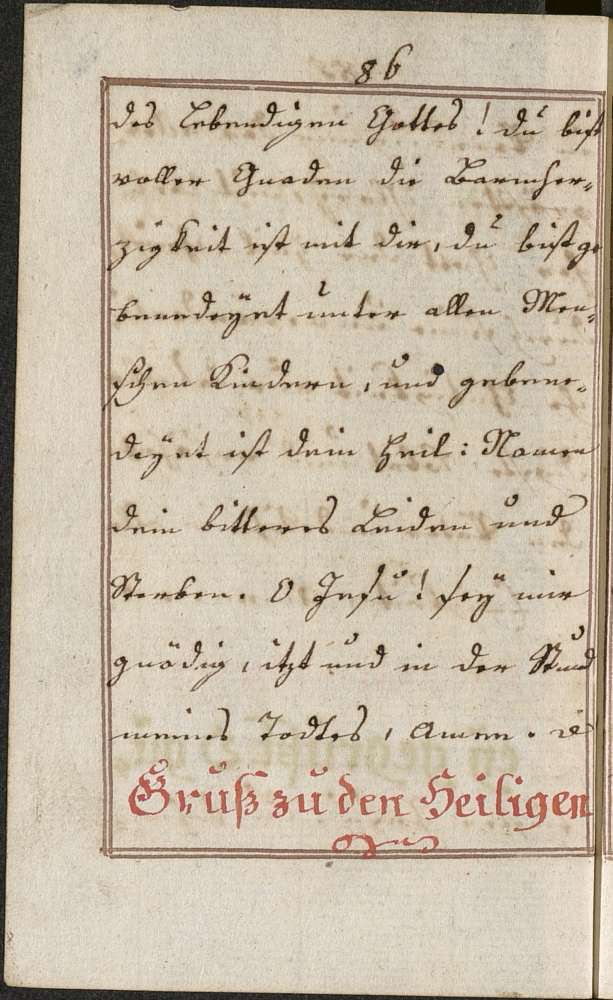 86
des lebendigen Gottes! du bist
voller Gnaden die Barmher-
zigkeit ist mit dir, du bist ge
benedeyet unter allen Men-
schen Kindern, und gebene-
deyet ist dein heil: Namen
dein bitteres Leiden und
Sterben. O Jesu! sey mir
gnädig, itzt und in der Stund
meines Todtes, Amen.
Gruß zu den Heiligen